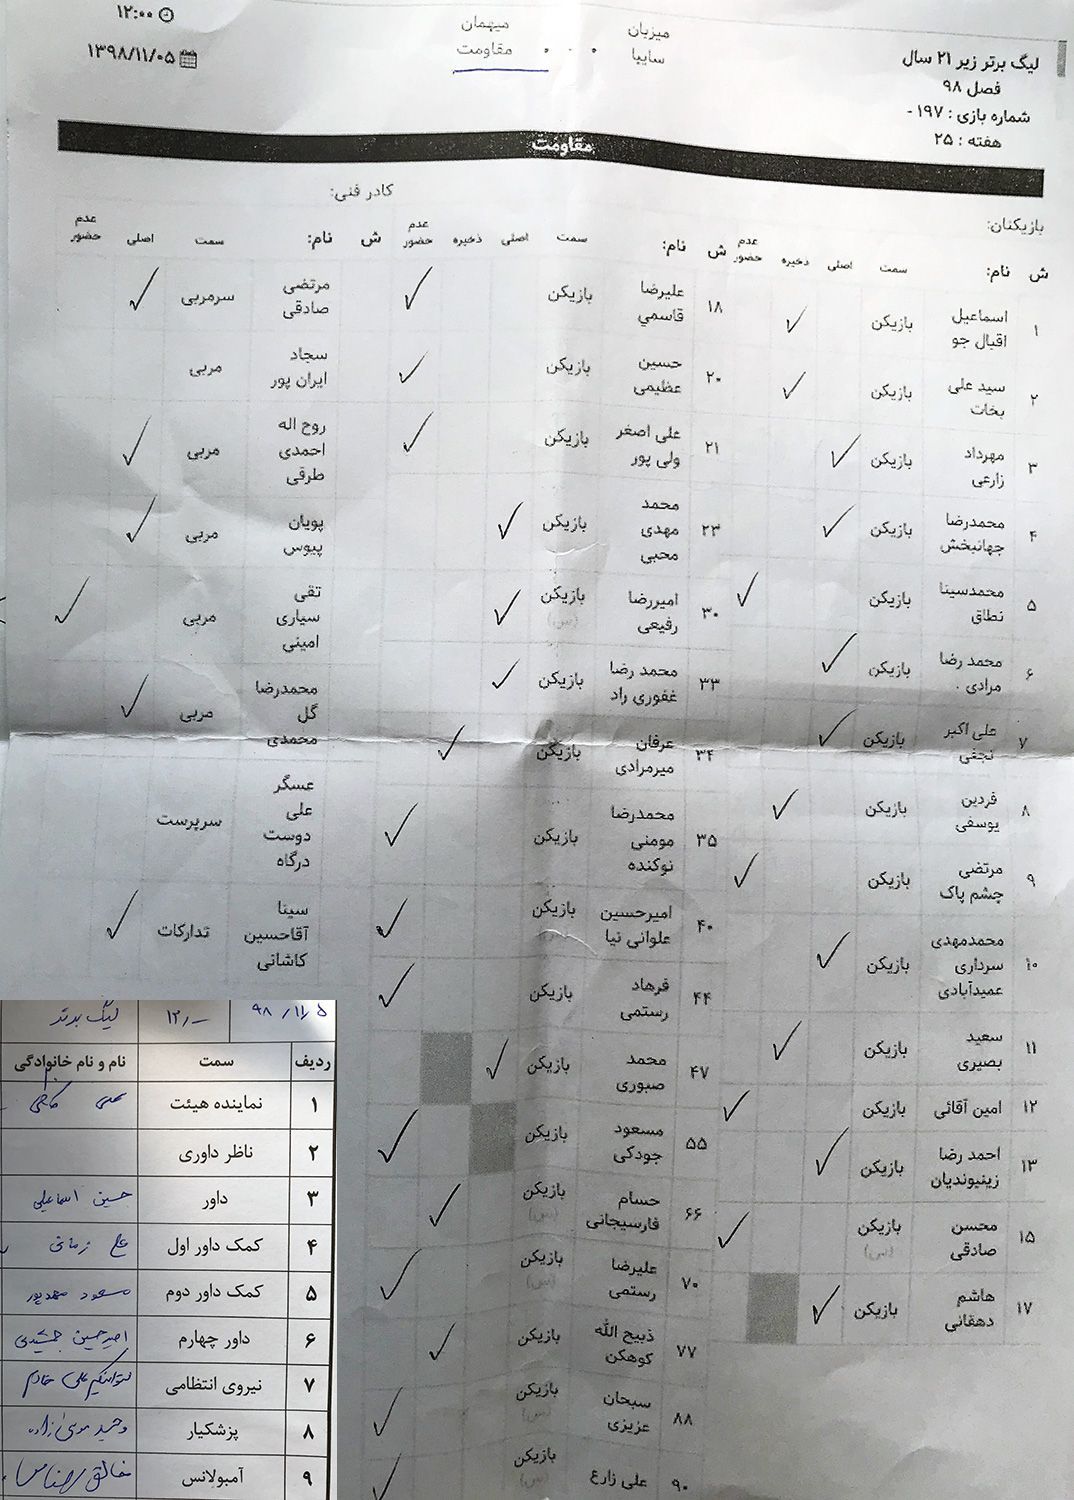 لیگ برتر زیر ۲۱ سال
فصل ۹۸
شماره بازی : ۱۹۷-
هفته : ۲۵
میزبان
سایپا
میهمان
مقاومت
۱۲:۰۰
۱۳۹۸/۱۱/۰۵
مقاومت
بازیکنان:
ش نام: سمت اصلی ذخیره عدم حضور
۱ اسماعیل اقبال جو بازیکن ✓
۲ سید علی بخات بازیکن ✓
۳ مهرداد زارعی بازیکن ✓
۴ محمدرضا جهانبخش بازیکن ✓
۵ محمدسینا نطاق بازیکن ✓
۶ محمد رضا مرادی . بازیکن ✓
۷ علی اکبر نجفی بازیکن ✓
۸ فردین یوسفی بازیکن ✓
۹ مرتضی چشم پاک بازیکن ✓
۱۰ محمدمهدی سرداری عمیدآبادی بازیکن ✓
۱۱ سعید بصیری بازیکن ✓
۱۲ امین آقائی بازیکن ✓
۱۳ احمد رضا زینیوندیان بازیکن ✓
۱۵ محسن صادقی بازیکن (س) ✓
۱۷ هاشم دهقانی بازیکن ✓
ش نام: سمت اصلی ذخیره عدم حضور
۱۸ علیرضا قاسمي بازیکن ✓
۲۰ حسین عظیمی بازیکن ✓
۲۱ علی اصغر ولی پور بازیکن ✓
۲۳ محمد مهدی محبی بازیکن ✓
۳۰ امیررضا رفیعی بازیکن (س) ✓
۳۳ محمد رضا غفوری راد بازیکن ✓
۳۴ عرفان میرمرادی بازیکن ✓
۳۵ محمدرضا مومنی نوکنده بازیکن ✓
۴۰ امیرحسین علوانی نیا بازیکن ✓
۴۴ فرهاد رستمی ✓
۴۷ محمد صبوری بازیکن ✓
۵۵ مسعود جودکی بازیکن ✓
۶۶ حسام فارسیجانی بازیکن (س) ✓
۷۰ علیرضا رستمی بازیکن (س) ✓
۷۷ ذبیح الله کوهکن بازیکن ✓
۸۸ سبحان عزیزی بازیکن (س) ✓
۹۰ علی زارع بازیکن (س) ✓
کادر فنی:
ش نام: سمت اصلی عدم حضور
مرتضی صادقی سرمربی ✓
سجاد ایران پور مربی
روح اله احمدی طرقی مربی ✓
پویان پیوس مربی ✓
تقی سیاری امینی مربی ✓
محمدرضا گل محمدی مربی ✓
عسگر علی دوست درگاه سرپرست
سینا آقاحسین کاشانی تدارکات ✓
۹۸/۱۱/۵ ۱۲/- لیگ برتر
ردیف سمت نام و نام خانوادگی
۱ نماینده هیئت
۲ ناظر داوری
۳ داور حسین اسماعیلی
۴ کمک داور اول علی زمانی
۵ کمک داور دوم مسعود مهدیپور
۶ داور چهارم امیرحسین جمشیدی
۷ نیروی انتظامی
۸ پزشکیار وحید موسی زاده
۹ آمبولانس